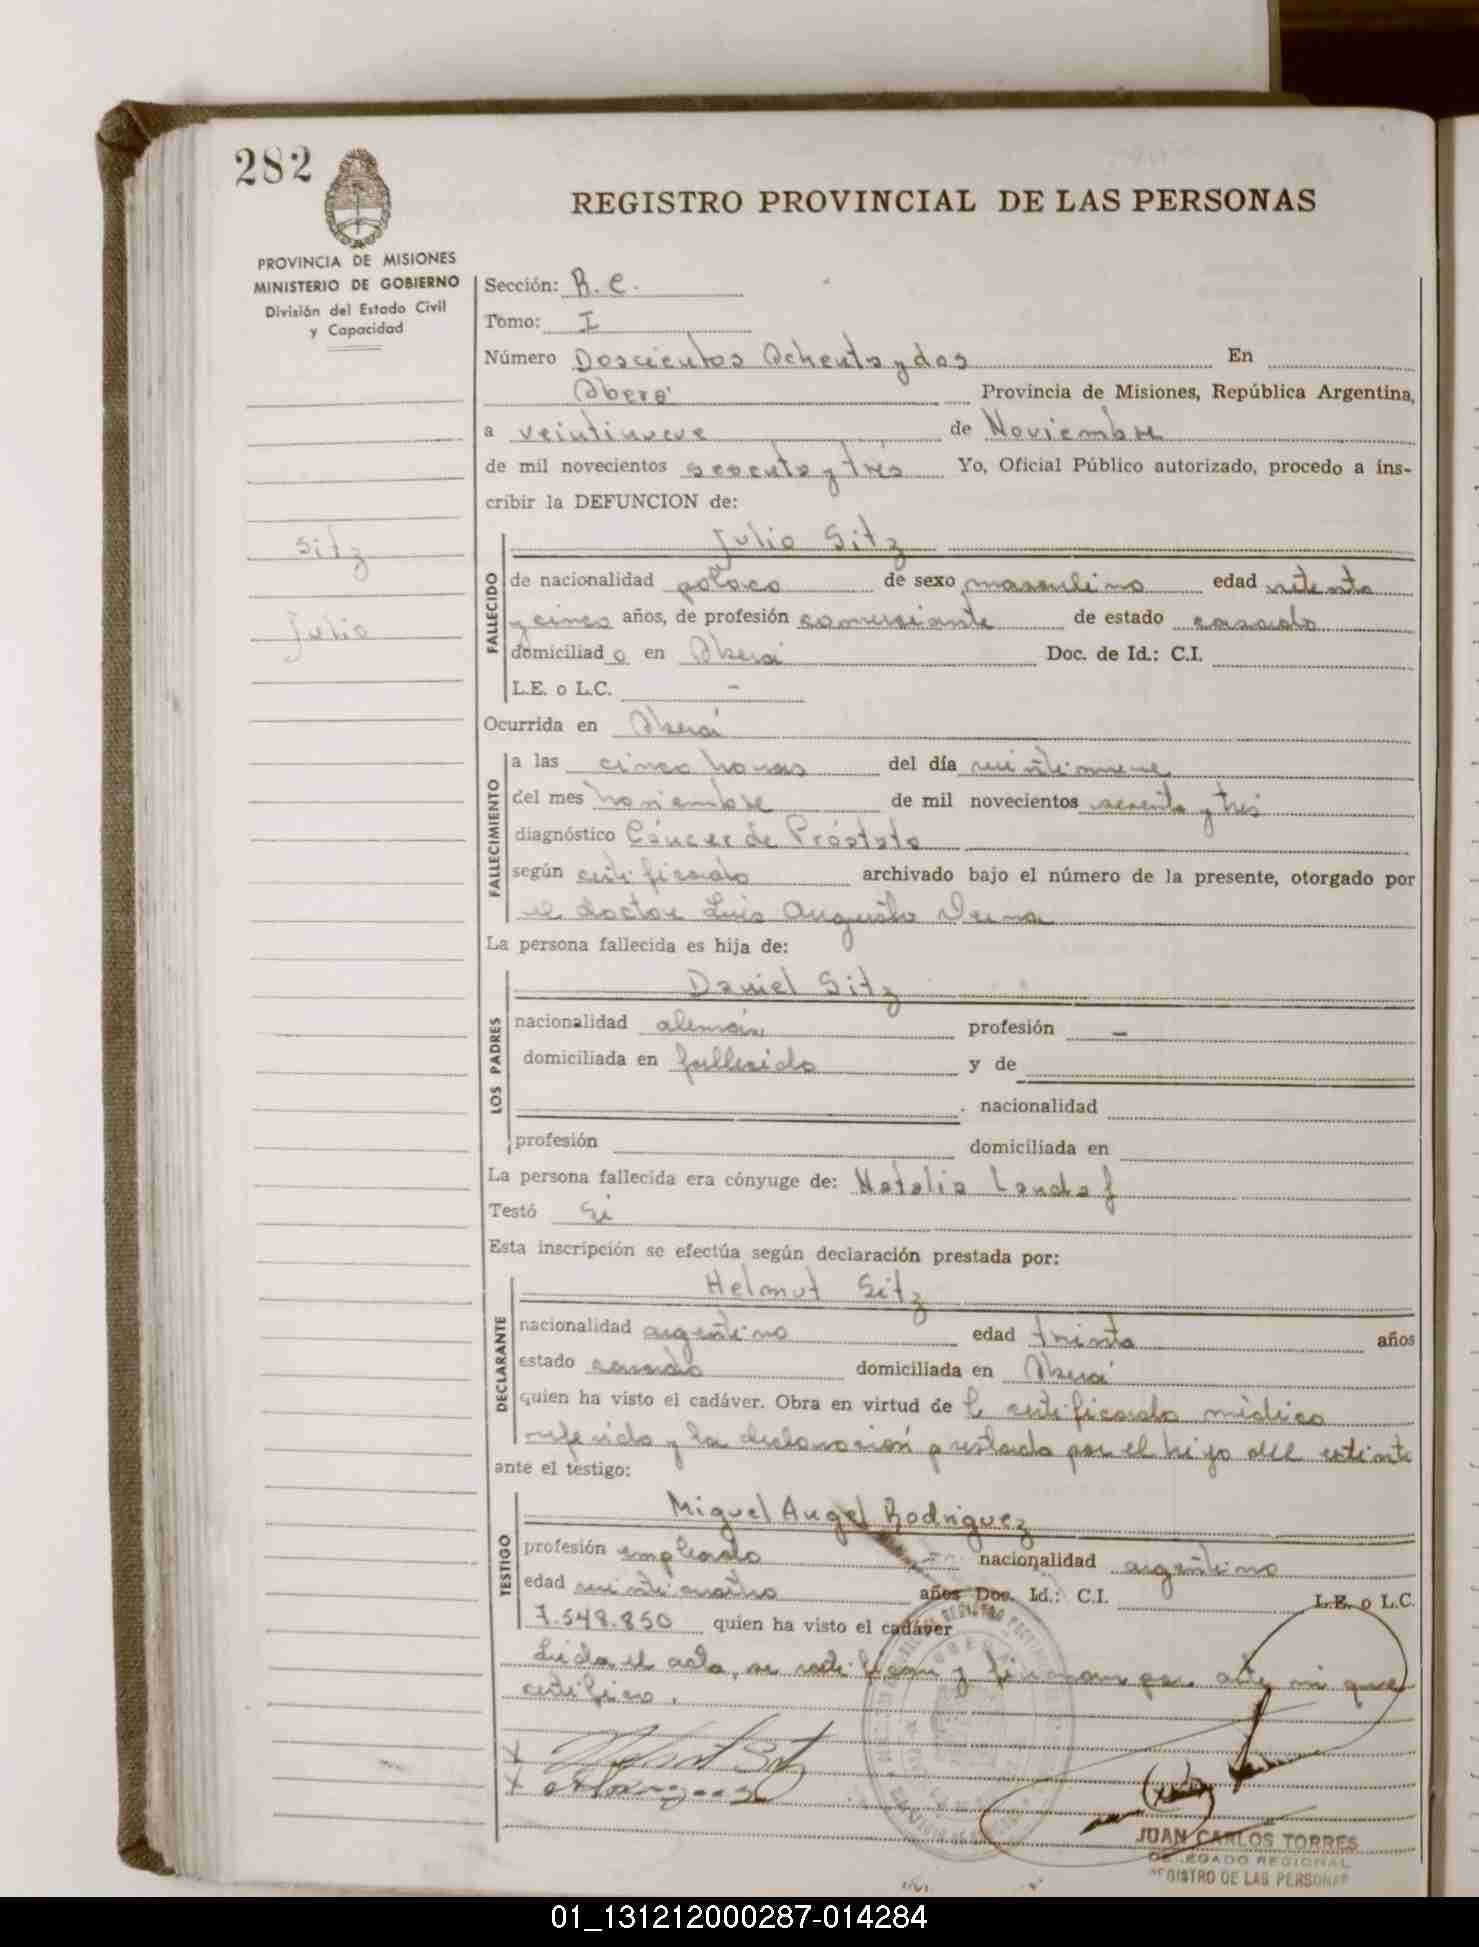 282
REGISTRO PROVINCIAL DE LAS PERSONAS
PROVINCIA DE MISIONES
MINISTERIO DE GOBIERNO
División del Estado Civil
y Capacidad
Sección: R. C.
Tomo: I
Número Doscientos Ochenta y dos En
Oberá Provincia de Misiones, República Argentina,
a veintinueve de Noviembre
de mil novecientos sesenta y tres Yo, Oficial Público autorizado, procedo a ins-
cribir la DEFUNCION de:
Sitz
Julio
FALLECIDO
Julio Sitz
de nacionalidad polaco de sexo masculino edad setenta
y cinco años, de profesión comerciante de estado casado
domiciliado en Oberá Doc. de Id.: C.I.
L.E. o L.C. -
Ocurrida en Oberá
FALLECIMIENTO
a las cinco horas del día veintinueve
del mes noviembre de mil novecientos sesenta y tres
diagnóstico Cáncer de Próstata
según certificado archivado bajo el número de la presente, otorgado por
el doctor Luis Augusto
La persona fallecida es hija de:
LOS PADRES
Daniel Sitz
nacionalidad alemán profesión -
domiciliada en fallecido y de
nacionalidad
profesión domiciliada en
La persona fallecida era cónyuge de: Natalia Landaf
Testó si
Esta inscripción se efectúa según declaración prestada por:
DECLARANTE
Helmut Sitz
nacionalidad argentino edad trinta años
estado casado domiciliada en Oberá
quien ha visto el cadáver. Obra en virtud de l certificado médico
referido y la declaración prestada por el hijo del extinto
ante el testigo:
TESTIGO
Miguel Angel Rodriguez
profesión empleado nacionalidad argentino
edad veinticuatro años Doc. Id.: C.I. L.E. o L.C.
7.548.850 quien ha visto el cadáver
Leida el acta, se ratifican y firman por ante mi que
certifico.
JUAN CARLOS TORRES
DELEGADO REGIONAL
REGISTRO DE LAS PERSONAS
01_131212000287-014284